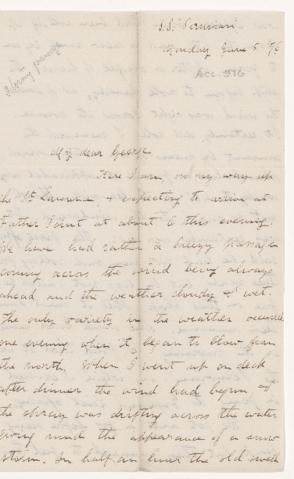 S.S. Peruvian
Monday June 5 '76
Acc. 3816
My dear George
Here I am on my way up
the St Lawrence & expecting to arrive at
Father Point at about 6 this evening.
We have had rather a breezy passage
coming across the wind being always
ahead and the weather cloudy & wet.
The only variety in the weather occurred
one evening when it began to blow from
the north. When I went up on deck
after dinner the wind had begun &
the spray was drifting across the water
giving much the appearance of a snow
storm. In half an hour the old